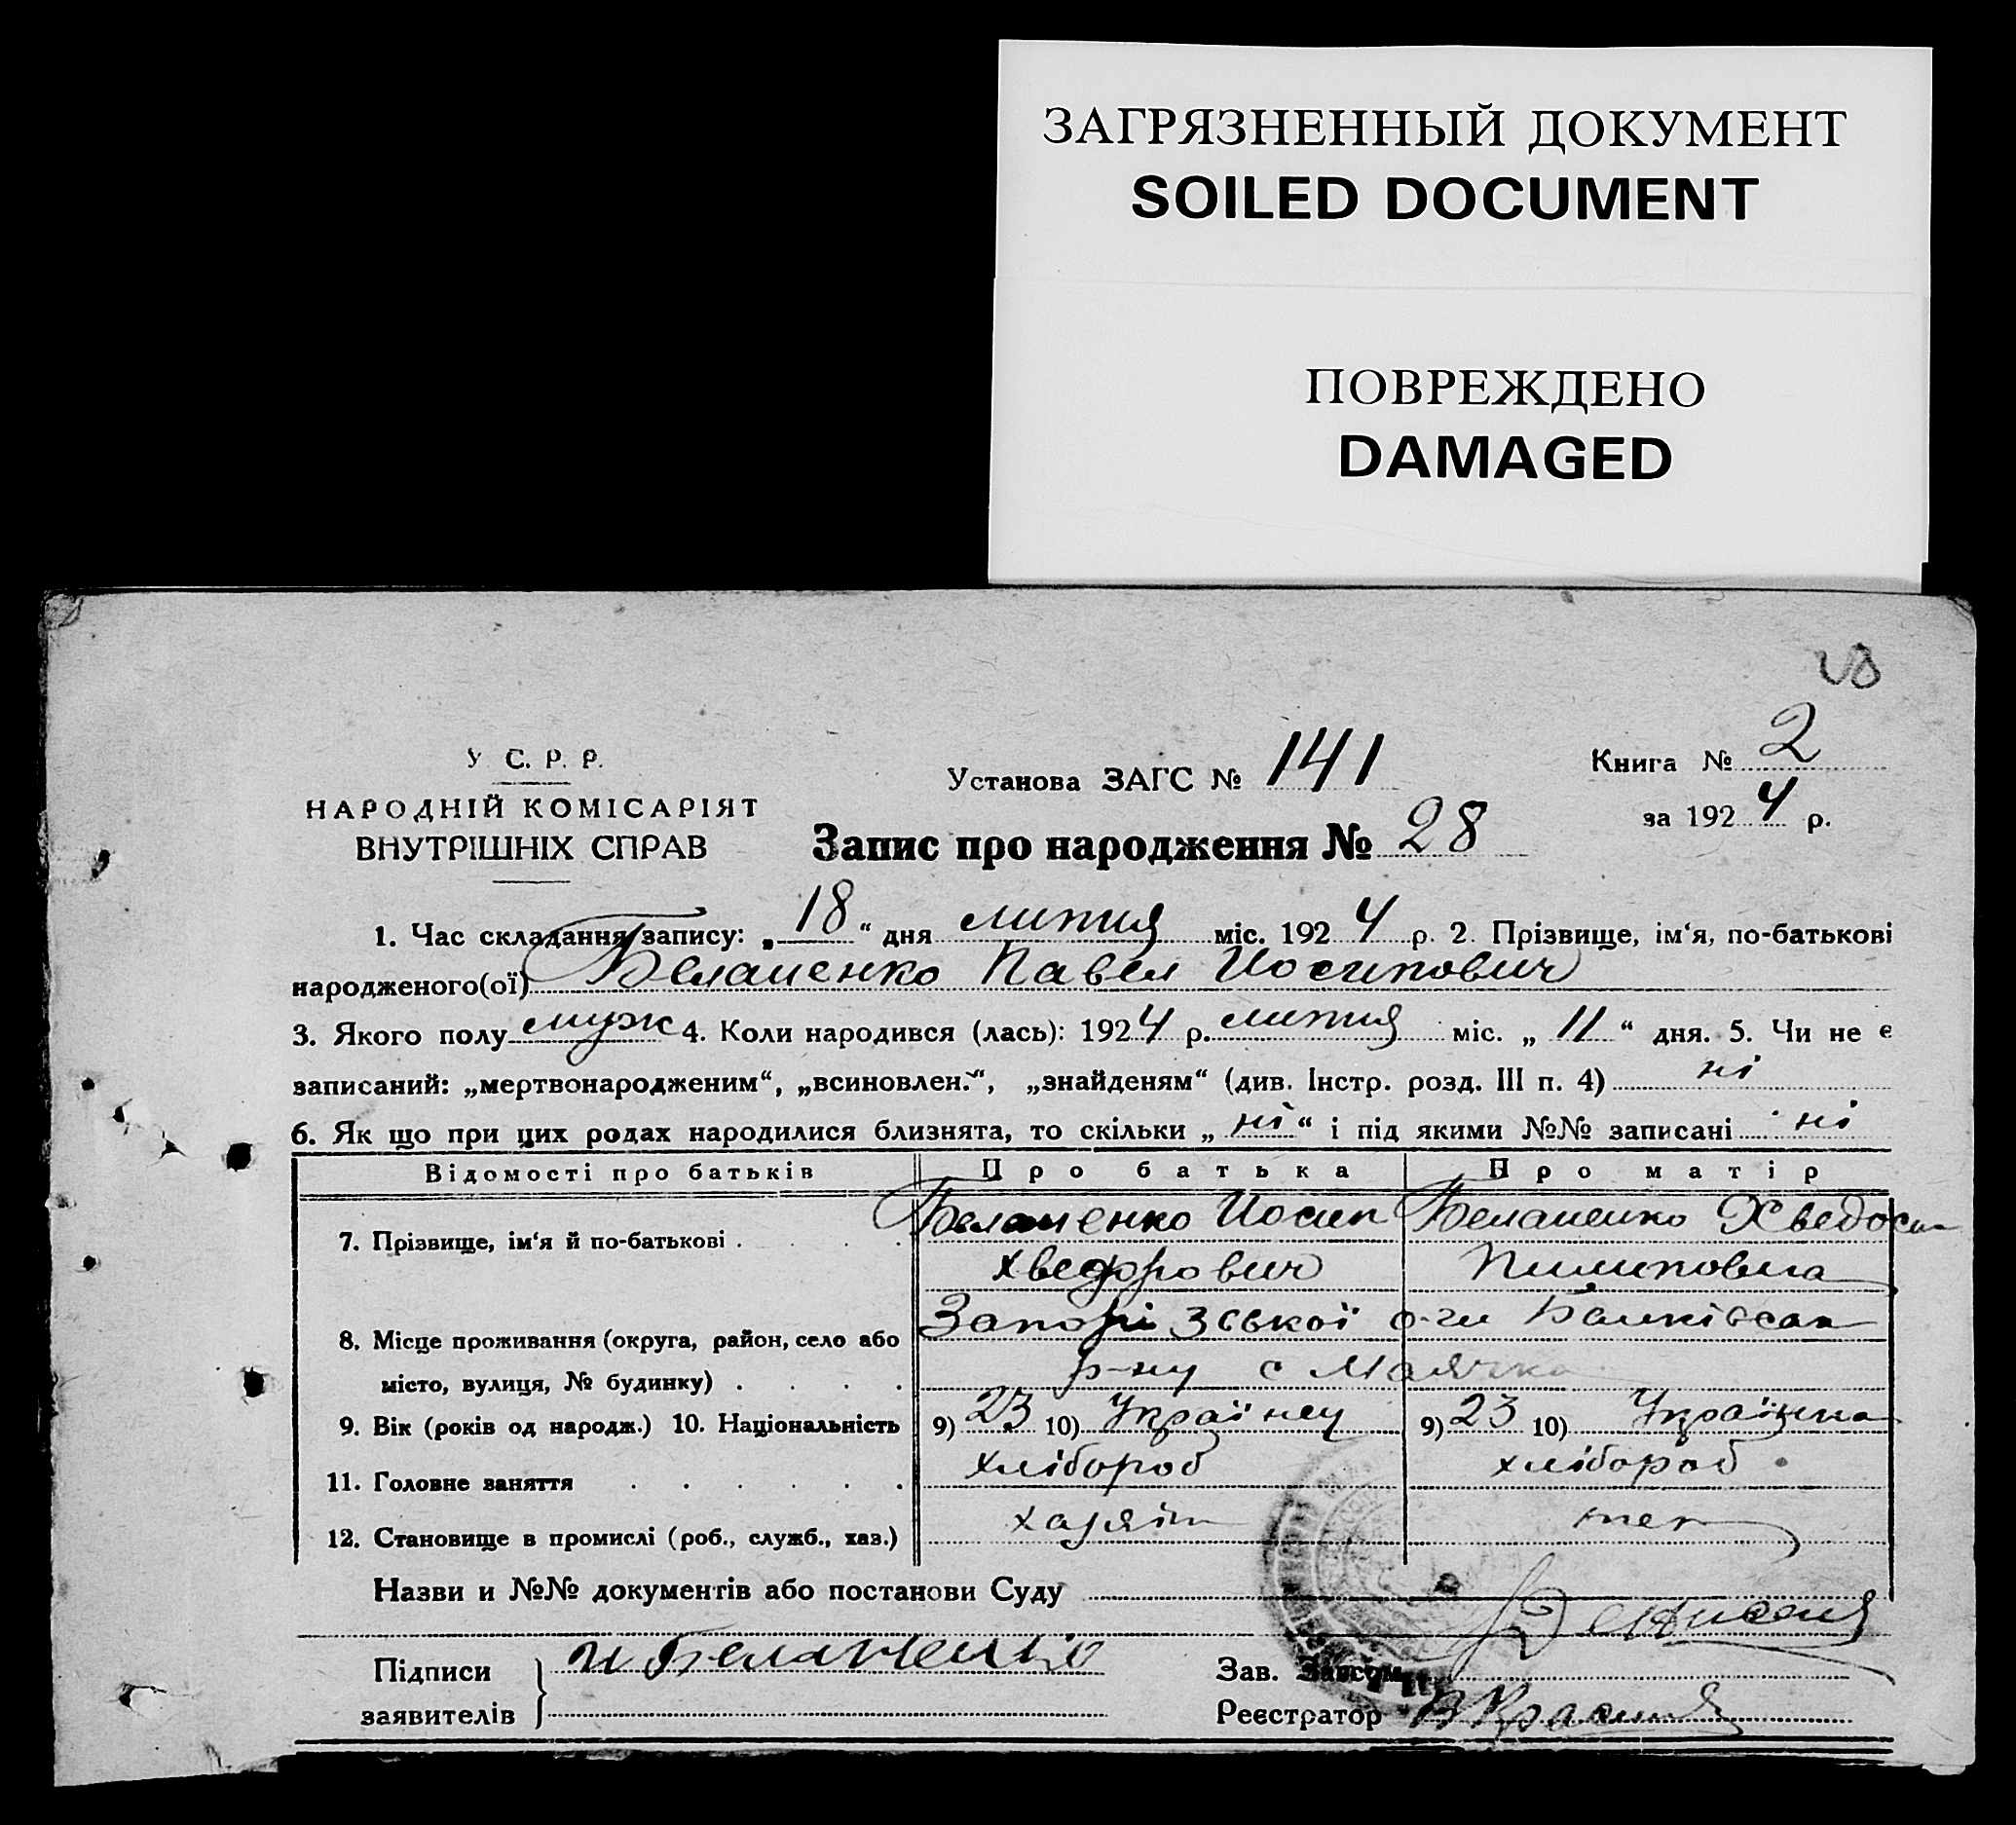 ЗАГРЯЗНЕННЫЙ ДОКУМЕНТ
SOILED DOCUMENT
ПОВРЕЖДЕНО
DAMAGED
28
У С. Р. Р.
НАРОДНІЙ КОМІСАРІЯТ
ВНУТРІШНІХ СПРАВ
Установа ЗАГС № 141
Книга № 2
за 1924 р.
Запис про народження № 28
1. Час складання запису: „18“ дня липня міс. 1924 р. 2. Прізвище, ім‘я, по-батькові
народженого(ої) Белашенко Павел Иосипович
3. Якого полу муж 4. Коли народився (лась): 1924 р. липня міс. „11“ дня. 5. Чи не є
записаний: „мертвонародженим“, „всиновлен.“, „знайденям“ (див. Інстр. розд. III п. 4) ні
6. Як що при цих родах народилися близнята, то скільки „ні“ і під якими №№ записані ні
Відомості про батьків Про батька Про матір
7. Прізвище, ім‘я й по-батькові . . . . Белашенко Иосип Белашенко Хведос
Хведорович Пилиповна
8. Місце проживання (округа, район, село або Запорізської о-ги
місто, вулиця, № будинку) . . . . р-ну с Маячка
9. Вік (років од народж.) 10. Національність 9) 23 10) Українец 9) 23 10) Українка
11. Головне заняття . . . . . . хлібороб хлібороб
12. Становище в промислі (роб., служб., хаз.) хазяін
Назви и №№ документів або постанови Суду
Підписи И Белашенко
заявителів
Зав. Загсом
Реєстратор